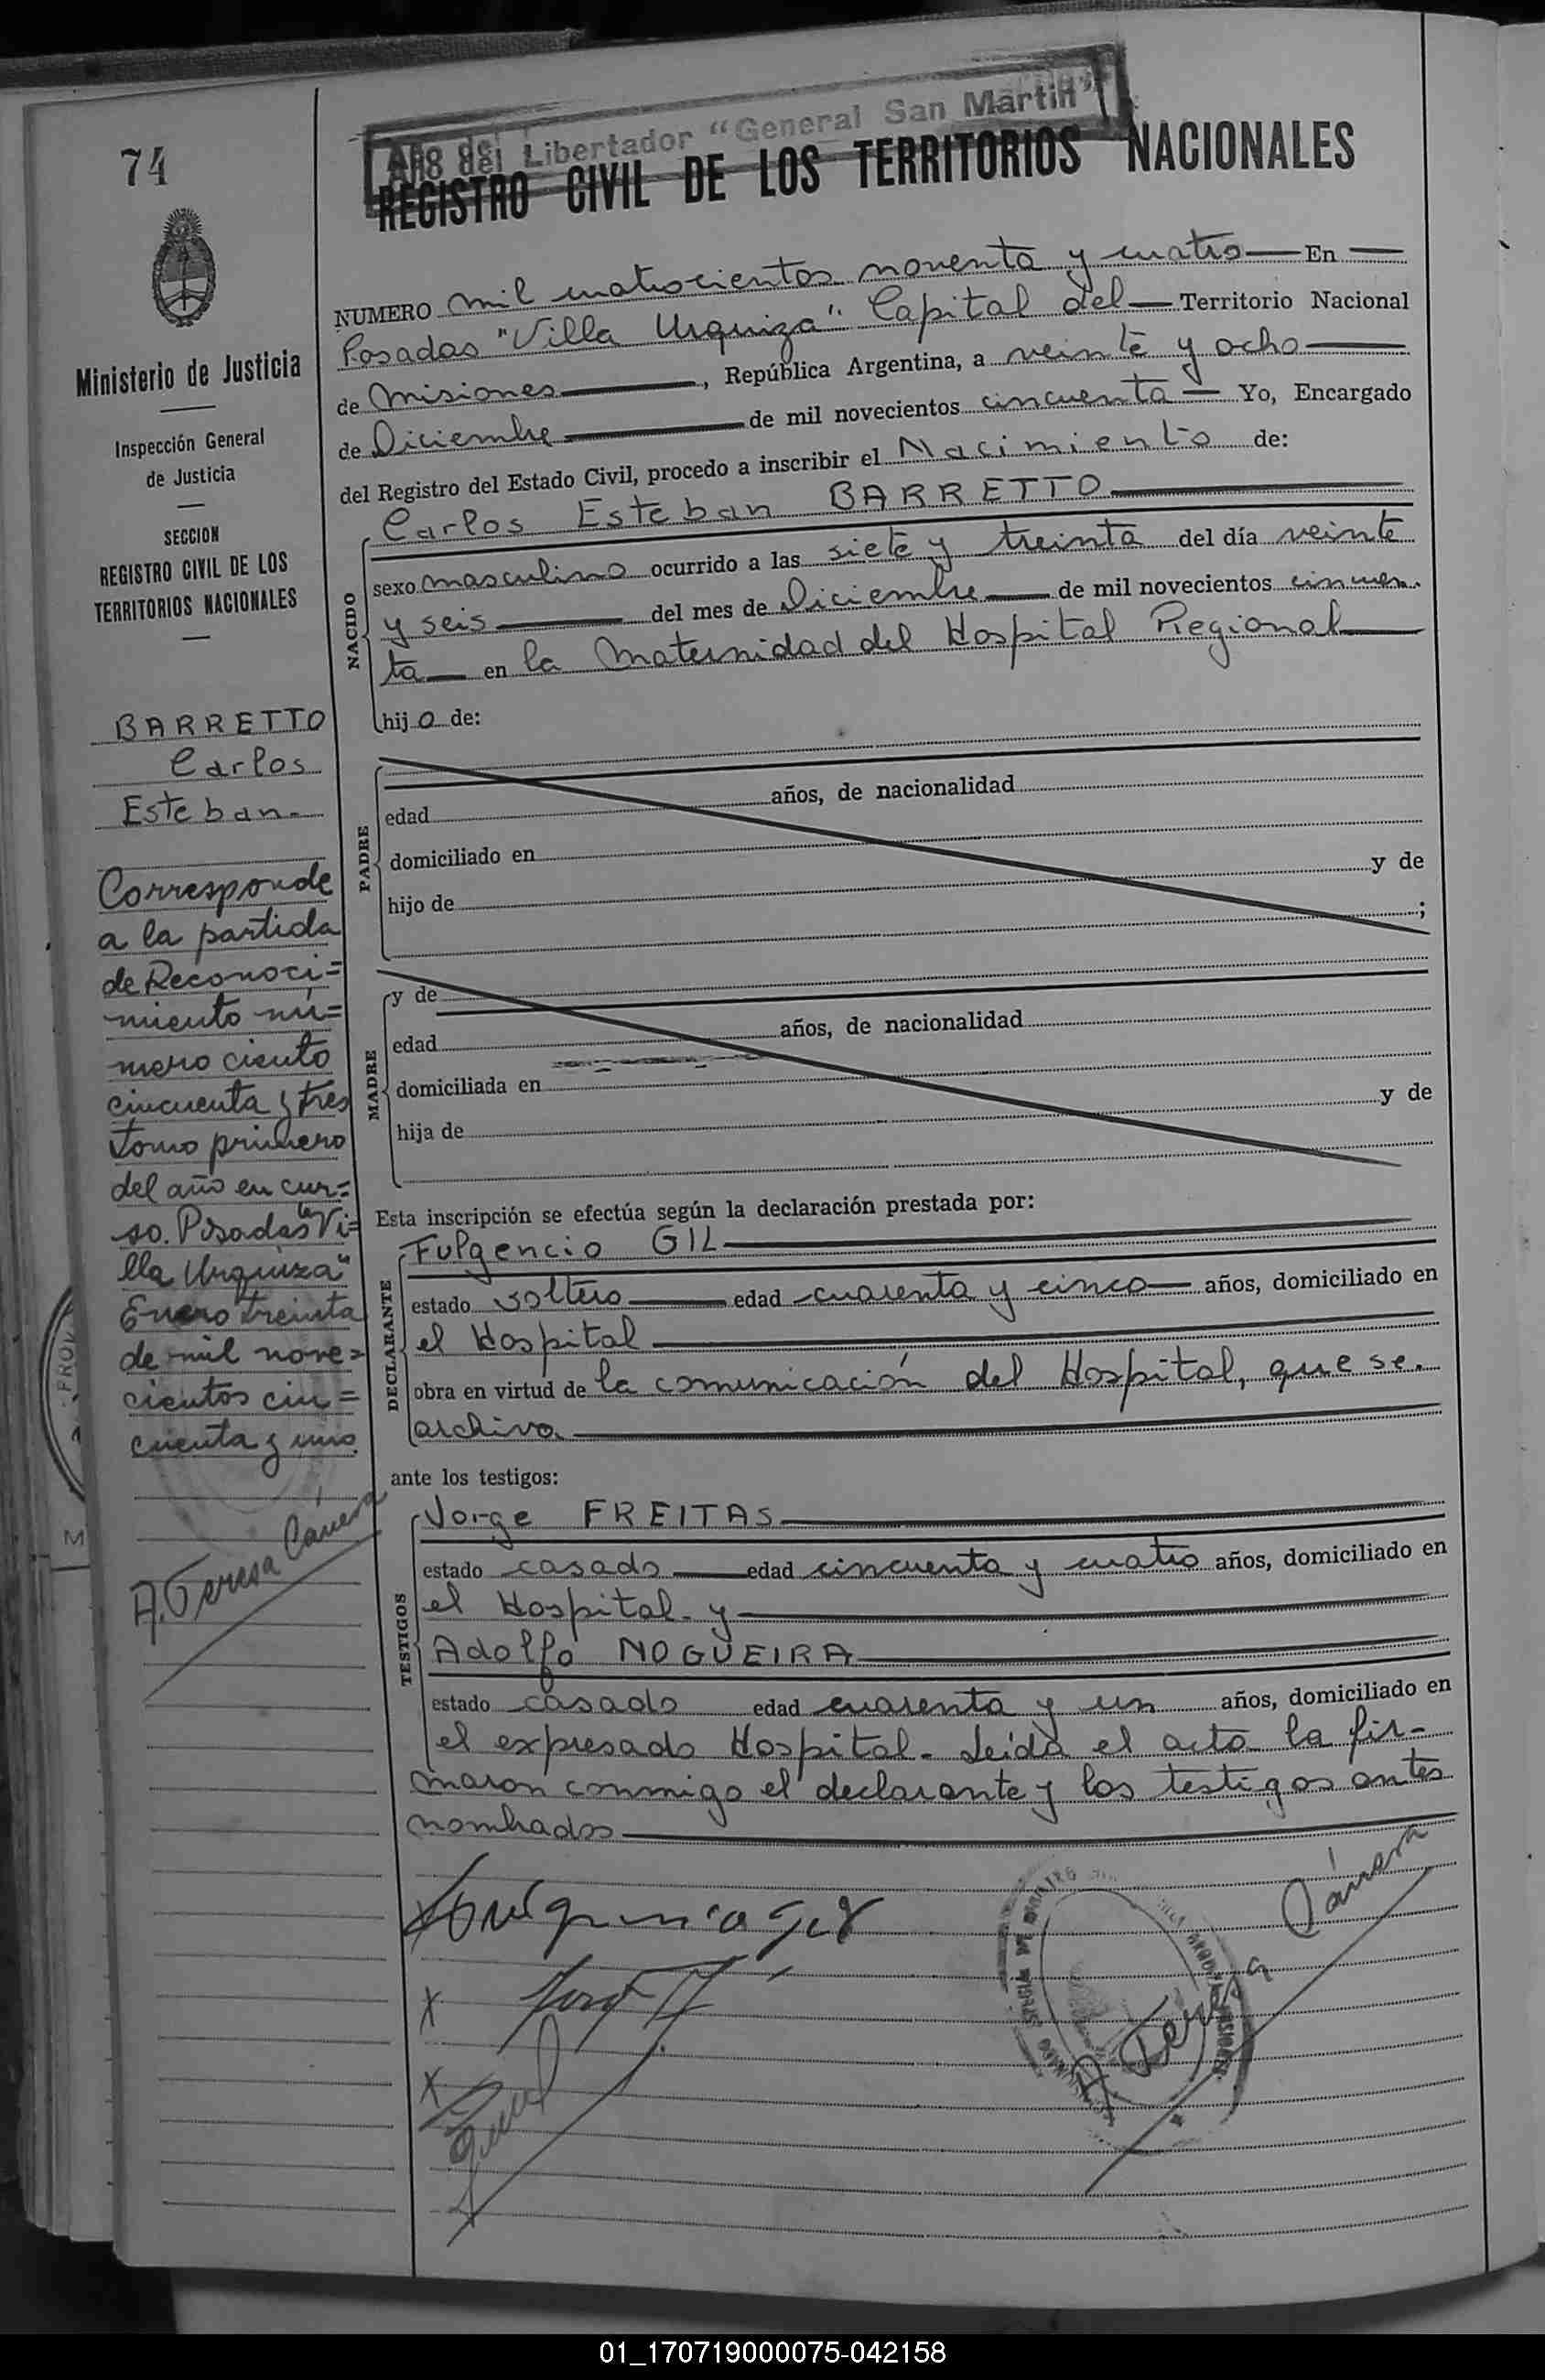 74
Año del Libertador "General San Martin"
REGISTRO CIVIL DE LOS TERRITORIOS NACIONALES
Ministerio de Justicia
Inspección General
de Justicia
SECCION
REGISTRO CIVIL DE LOS
TERRITORIOS NACIONALES
BARRETTO
Carlos
Esteban.
Corresponde
a la partida
de Reconoci=
miento nú=
mero ciento
cincuenta y tres
tomo primero
del año en cur=
so. Posadas "Vi=
lla Urquiza"
Enero treinta
de mil nove=
cientos cin=
cuenta y uno
A. Teresa Cámera
NUMERO mil cuatrocientos noventa y cuatro En
Posadas "Villa Urquiza" Capital del Territorio Nacional
de Misiones, República Argentina, a veinte y ocho
de Diciembre de mil novecientos cincuenta Yo, Encargado
del Registro del Estado Civil, procedo a inscribir el Nacimiento de:
NACIDO
Carlos Esteban BARRETTO
sexo masculino ocurrido a las siete y treinta del día veinte
y seis del mes de Diciembre de mil novecientos cincuen
ta en la Maternidad del Hospital Regional
hijo de:
PADRE
edad años, de nacionalidad
domiciliado en
hijo de y de
;
MADRE
y de
edad años, de nacionalidad
domiciliada en
hija de y de
Esta inscripción se efectúa según la declaración prestada por:
DECLARANTE
Fulgencio GIL
estado soltero edad cuarenta y cinco años, domiciliado en
el Hospital
obra en virtud de la comunicación del Hospital, que se.
archiva
ante los testigos:
TESTIGOS
Jorge FREITAS
estado casado edad cincuenta y cuatro años, domiciliado en
el Hospital. y
Adolfo NOGUEIRA
estado casado edad cuarenta y un años, domiciliado en
el expresado Hospital. Leída el acta la fir-
maron conmigo el declarante y los testigos antes
nombrados
X
X
A. Teresa Cámera
01_170719000075-042158